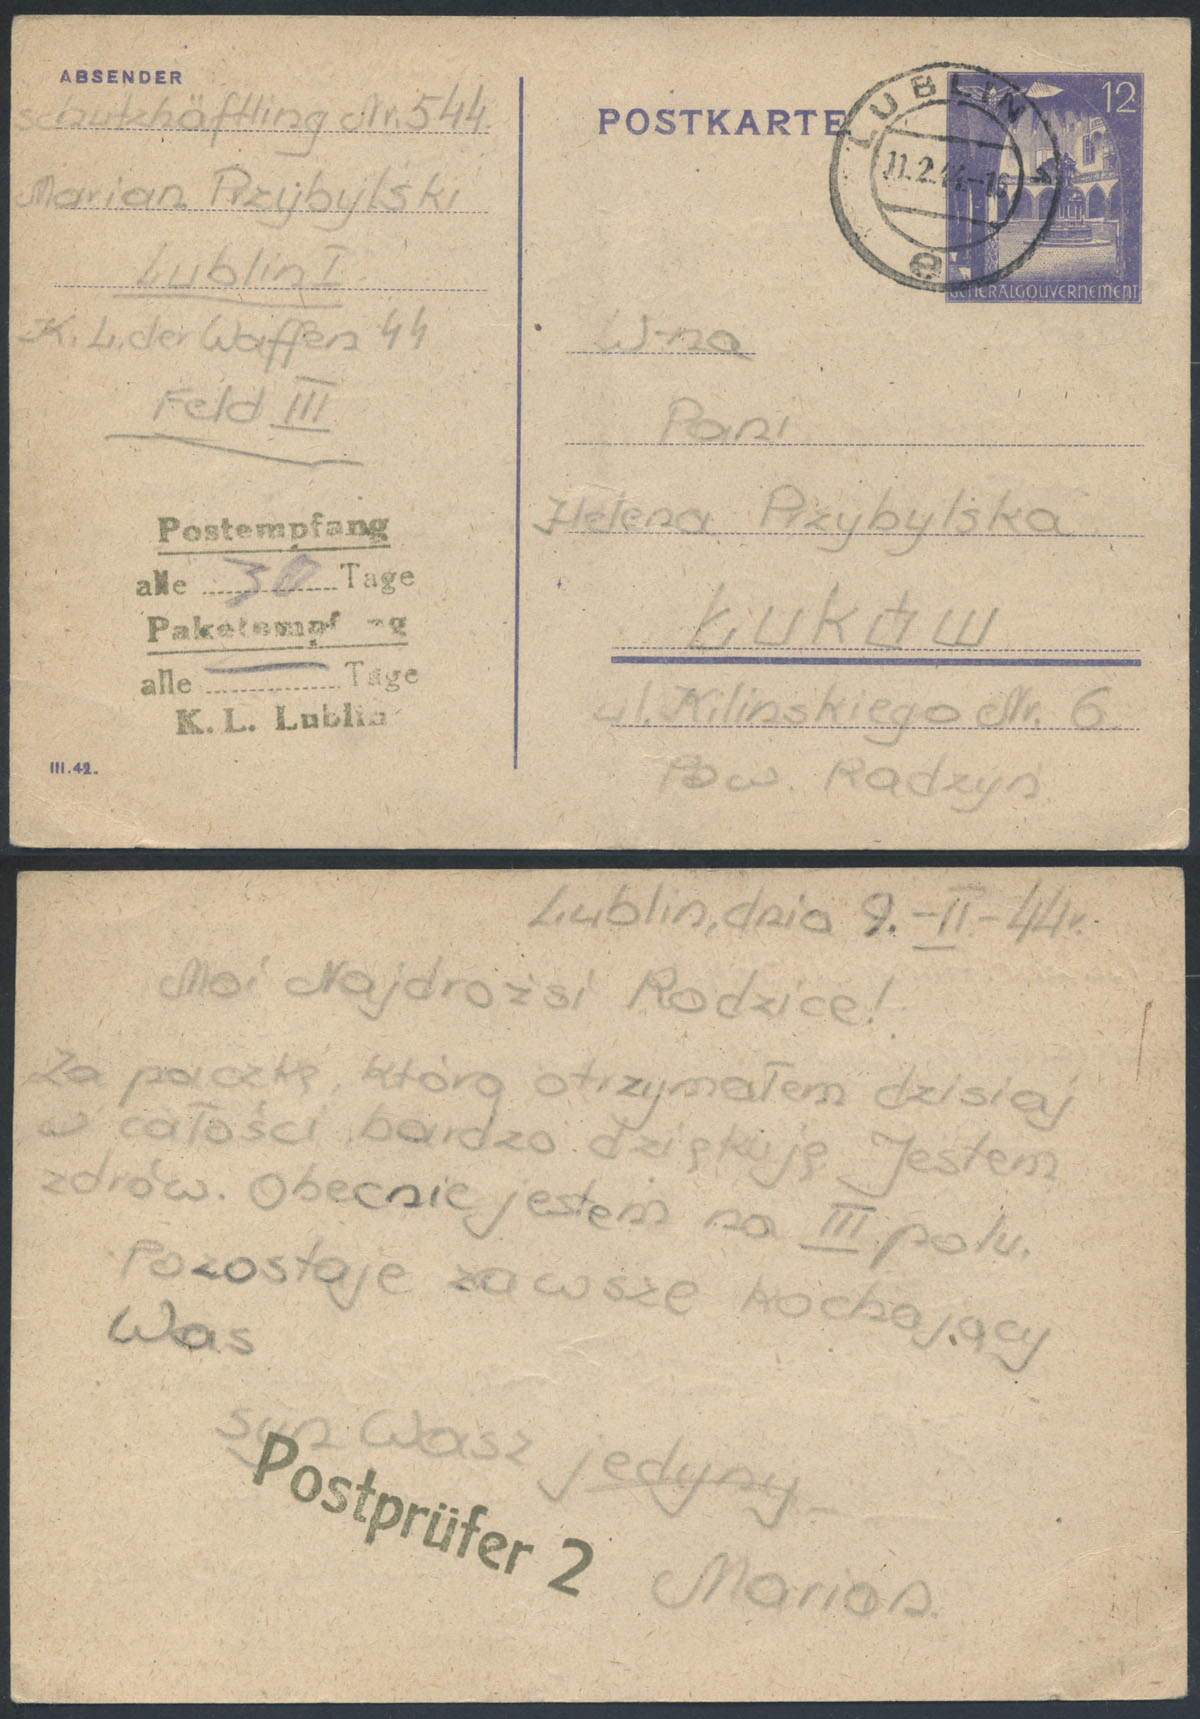 ABSENDER
Schutzhäftling Nr. 544.
Marian Przybylski
Lublin I
K. L. der Waffen 44
Feld III
Postempfang
alle 30 Tage
Paketempfang
alle Tage
K. L. Lublin
III.42.
POSTKARTE
LUBLIN
11.2.44-16
e
12
GENERALGOUVERNEMENT
W-na
Pani
Helena Przybylska
Łuków
ul. Kilinskiego Nr. 6
Pow. Radzyń
Lublin, dnia 9.-II-44r.
Moi Najdrożsi Rodzice!
Za paczkę, którą otrzymałem dzisiaj
w całości bardzo dziękuję Jestem
zdrów. Obecnie jestem na III polu.
Pozostaję zawsze kochający
Was
syn Wasz jedyny
Postprüfer 2
Marian.